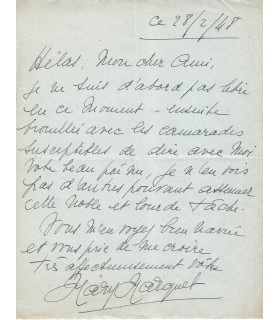 ce 28/2/48
Hélas, Mon cher Ami,
je ne suis d'abord pas libre
en ce moment - ensuite
brouillée avec les camarades
susceptibles de dire avec Moi
votre beau poème, je n'en vois
pas d'autres pouvant assumer
cette Noble et lourde tâche.
Vous m'en voyez bien navrée
et vous prie de me croire
très affectueusement vôtre
Mary Marquet